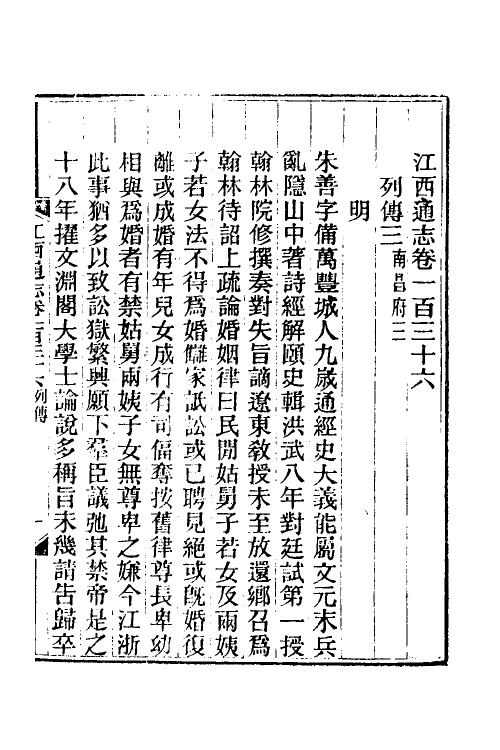 江西通志卷一百三十六
列傳三 南昌府三
明
朱善字備萬豐城人九歲通經史大義能屬文元末兵
亂隱山中著詩經解頤史輯洪武八年對廷試第一授
翰林院修撰奏對失旨謫遼東教授未至放還鄉召爲
翰林待詔上疏論婚姻律曰民閒姑舅子若女及兩姨
子若女法不得爲婚讎家詆訟或已聘見絕或旣婚復
離或成婚有年兒女成行有司偪奪按舊律尊長卑幼
相與爲婚者有禁姑舅兩姨子女無尊卑之嫌今江浙
此事猶多以致訟獄繁興願下羣臣議弛其禁帝是之
十八年擢文淵閣大學士論說多稱旨未幾請告歸卒
江西通志卷一百三十六 列傳 一